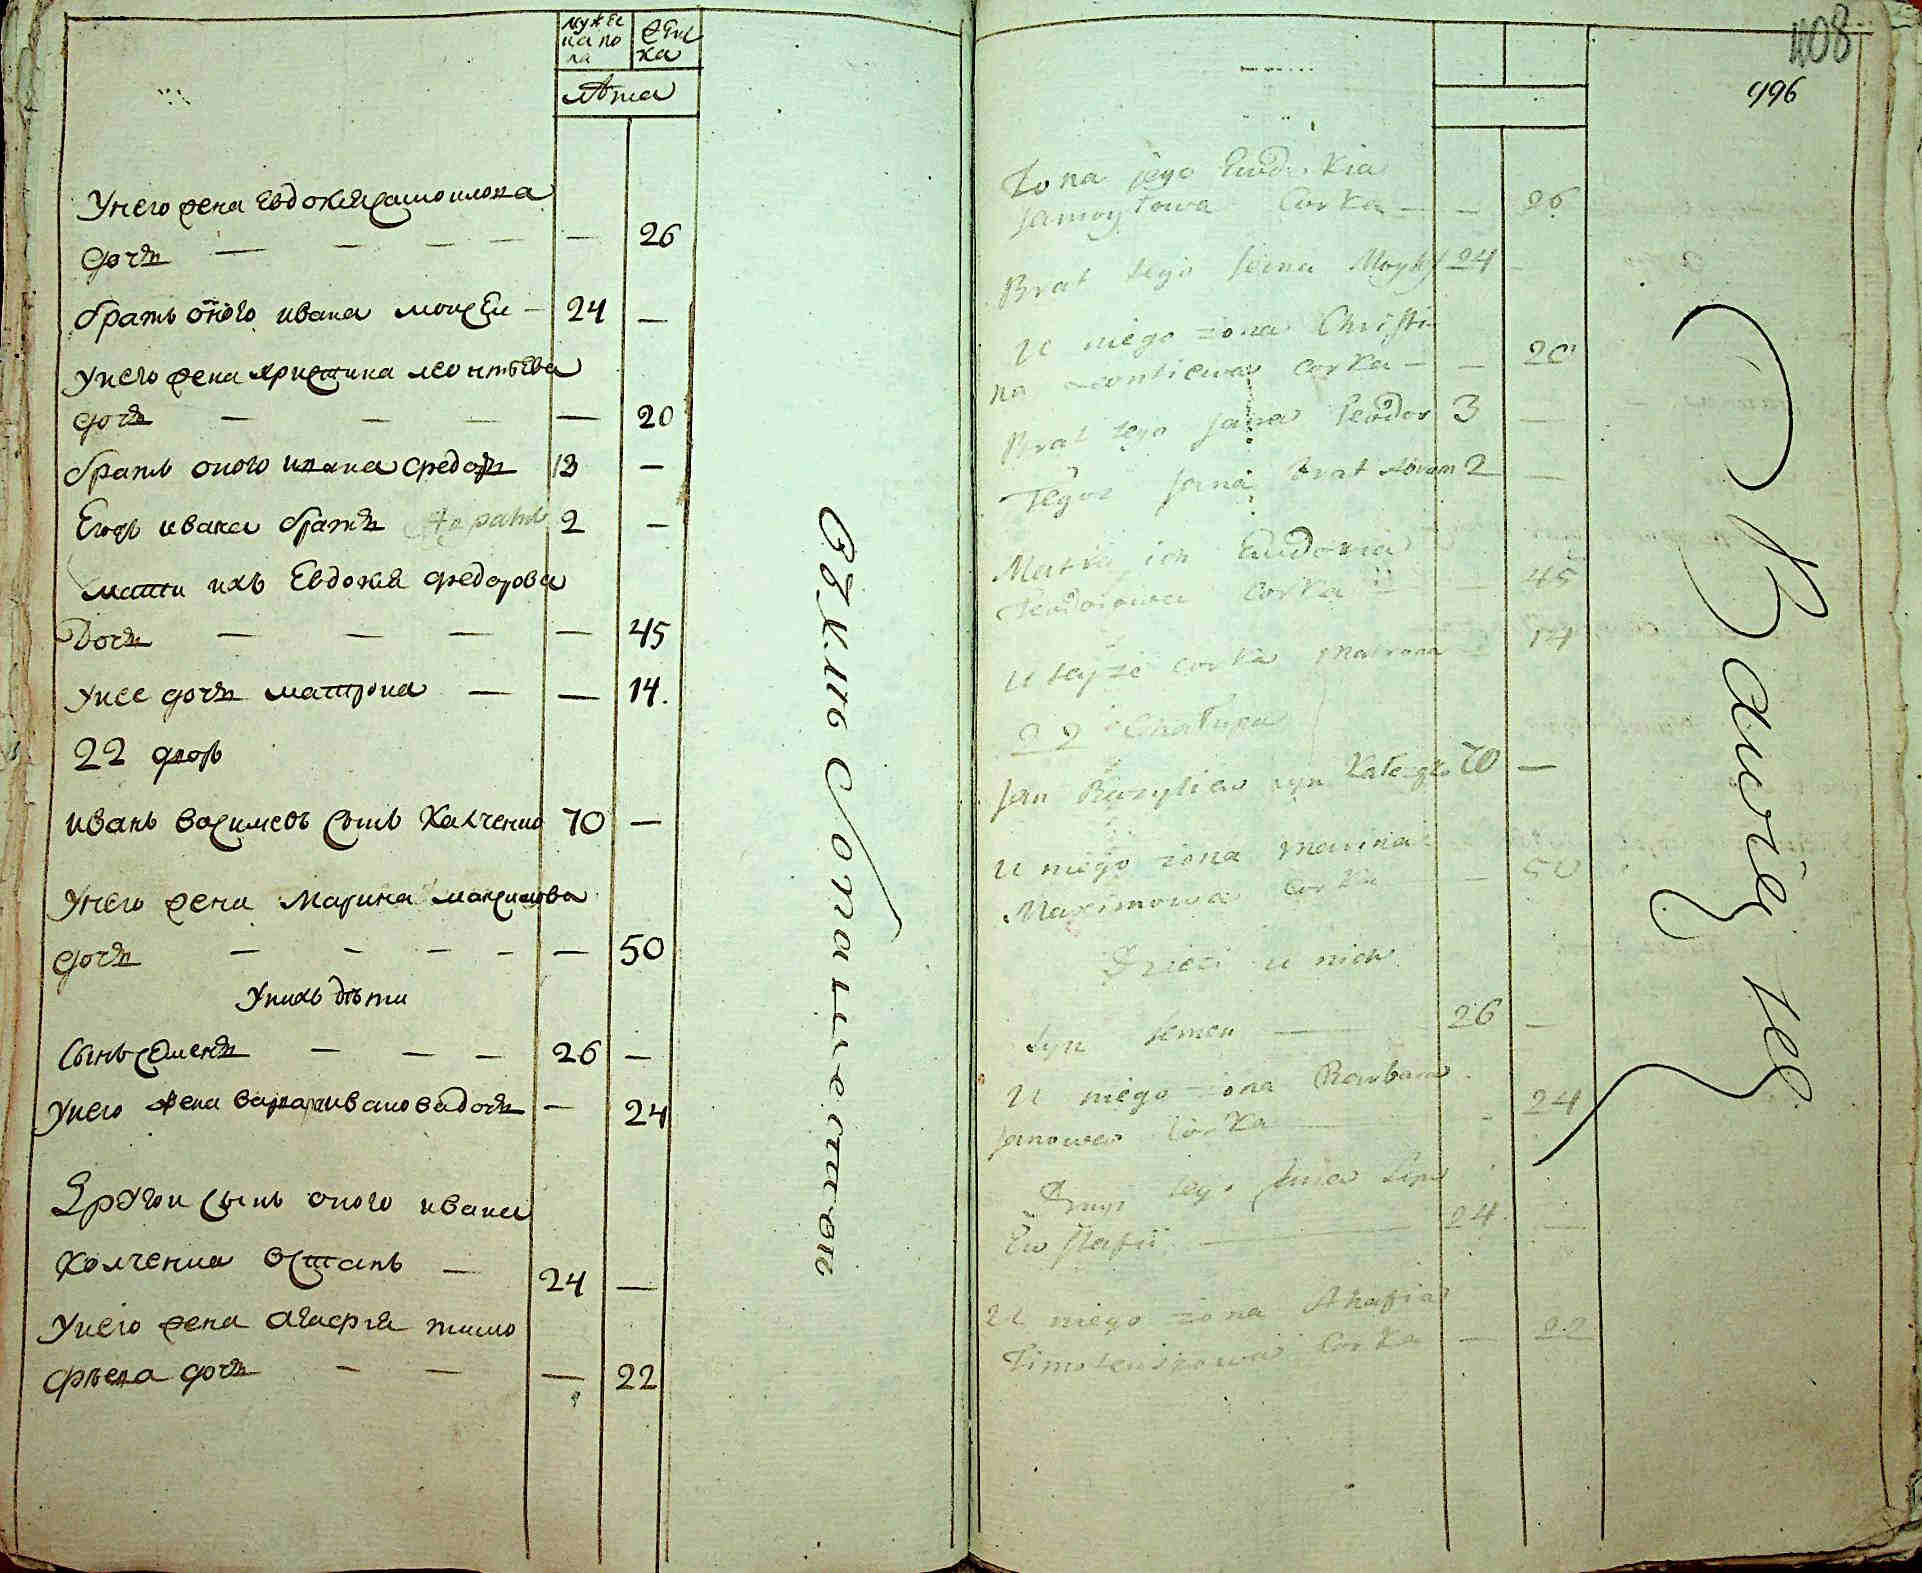 мужеска пола
женска
лѣта
У него жена Евдокия Самоилова
дочь — — — — — 26
братъ оного Ивана Моисеи — 24 —
У него жена Христина Леонтьева
дочь — — — — 20
братъ оного Ивана Федоръ 13 —
Егожъ Ивана братъ 2 —
мати ихъ Евдокия Федорова
Дочь — — — — 45
У нее дочь Матрона — — 14.
22 дворъ
Иванъ Василиевъ сынъ Халченко 70 —
У него жена Марина Максимова
дочь — — — — — 50
У нихъ дѣти
Сынъ Семенъ — — — 26 —
У него жена Варвара Иванова дочь — 24
Другои сынъ оного Ивана
Холченка Остапъ — 24 —
У него жена Агафия Тимо
фѣева дочь — — — 22
408
496
Zona jego Eudokia
Samoyłowa Corka — — 26
Brat tego Jana Moysey 24 —
U niego zona Christi
na Leontiewa corka — — 20
Brat tego Jana Teodor 3 —
Tegoz Jana brat 2 —
Matka ich Eudokia
Teodorowa corka — 45
U teyze corka Matrona 14
22 Chałupa
Jan Bazyliew syn 70 —
U niego zona Marina
Maximowa Corka — 50
Dzieci u nich
Syn Semen — 26 —
U niego zona Barbara
Janowa Corka — 24
Drugi tego Jana Syn
Eustafii — 24 —
U niego zona Ahafia
Corka — 22